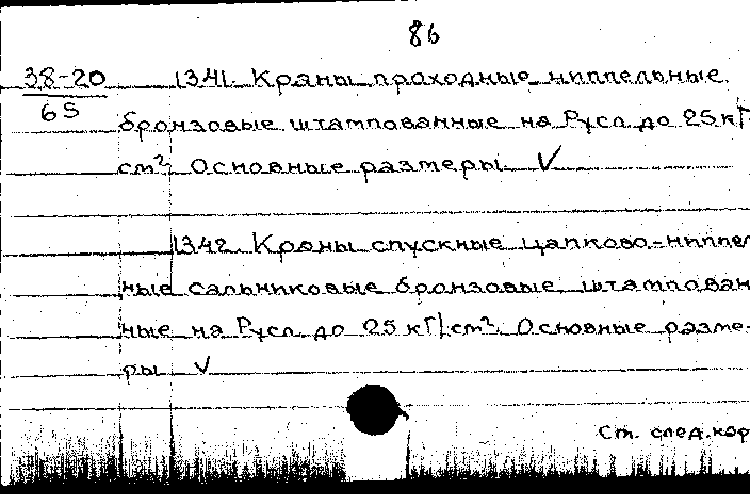 86
38-20 1341. Краны проходные ниппельные
65
бронзовые штампованные на Русл до 25 кг/
см². Основные размеры. V
1342. Краны спускные цапково-ниппел
ные сальниковые бронзовые штампован
ные на Русл до 25 кг/см². Основные разме-
ры V
Ст. след. кар